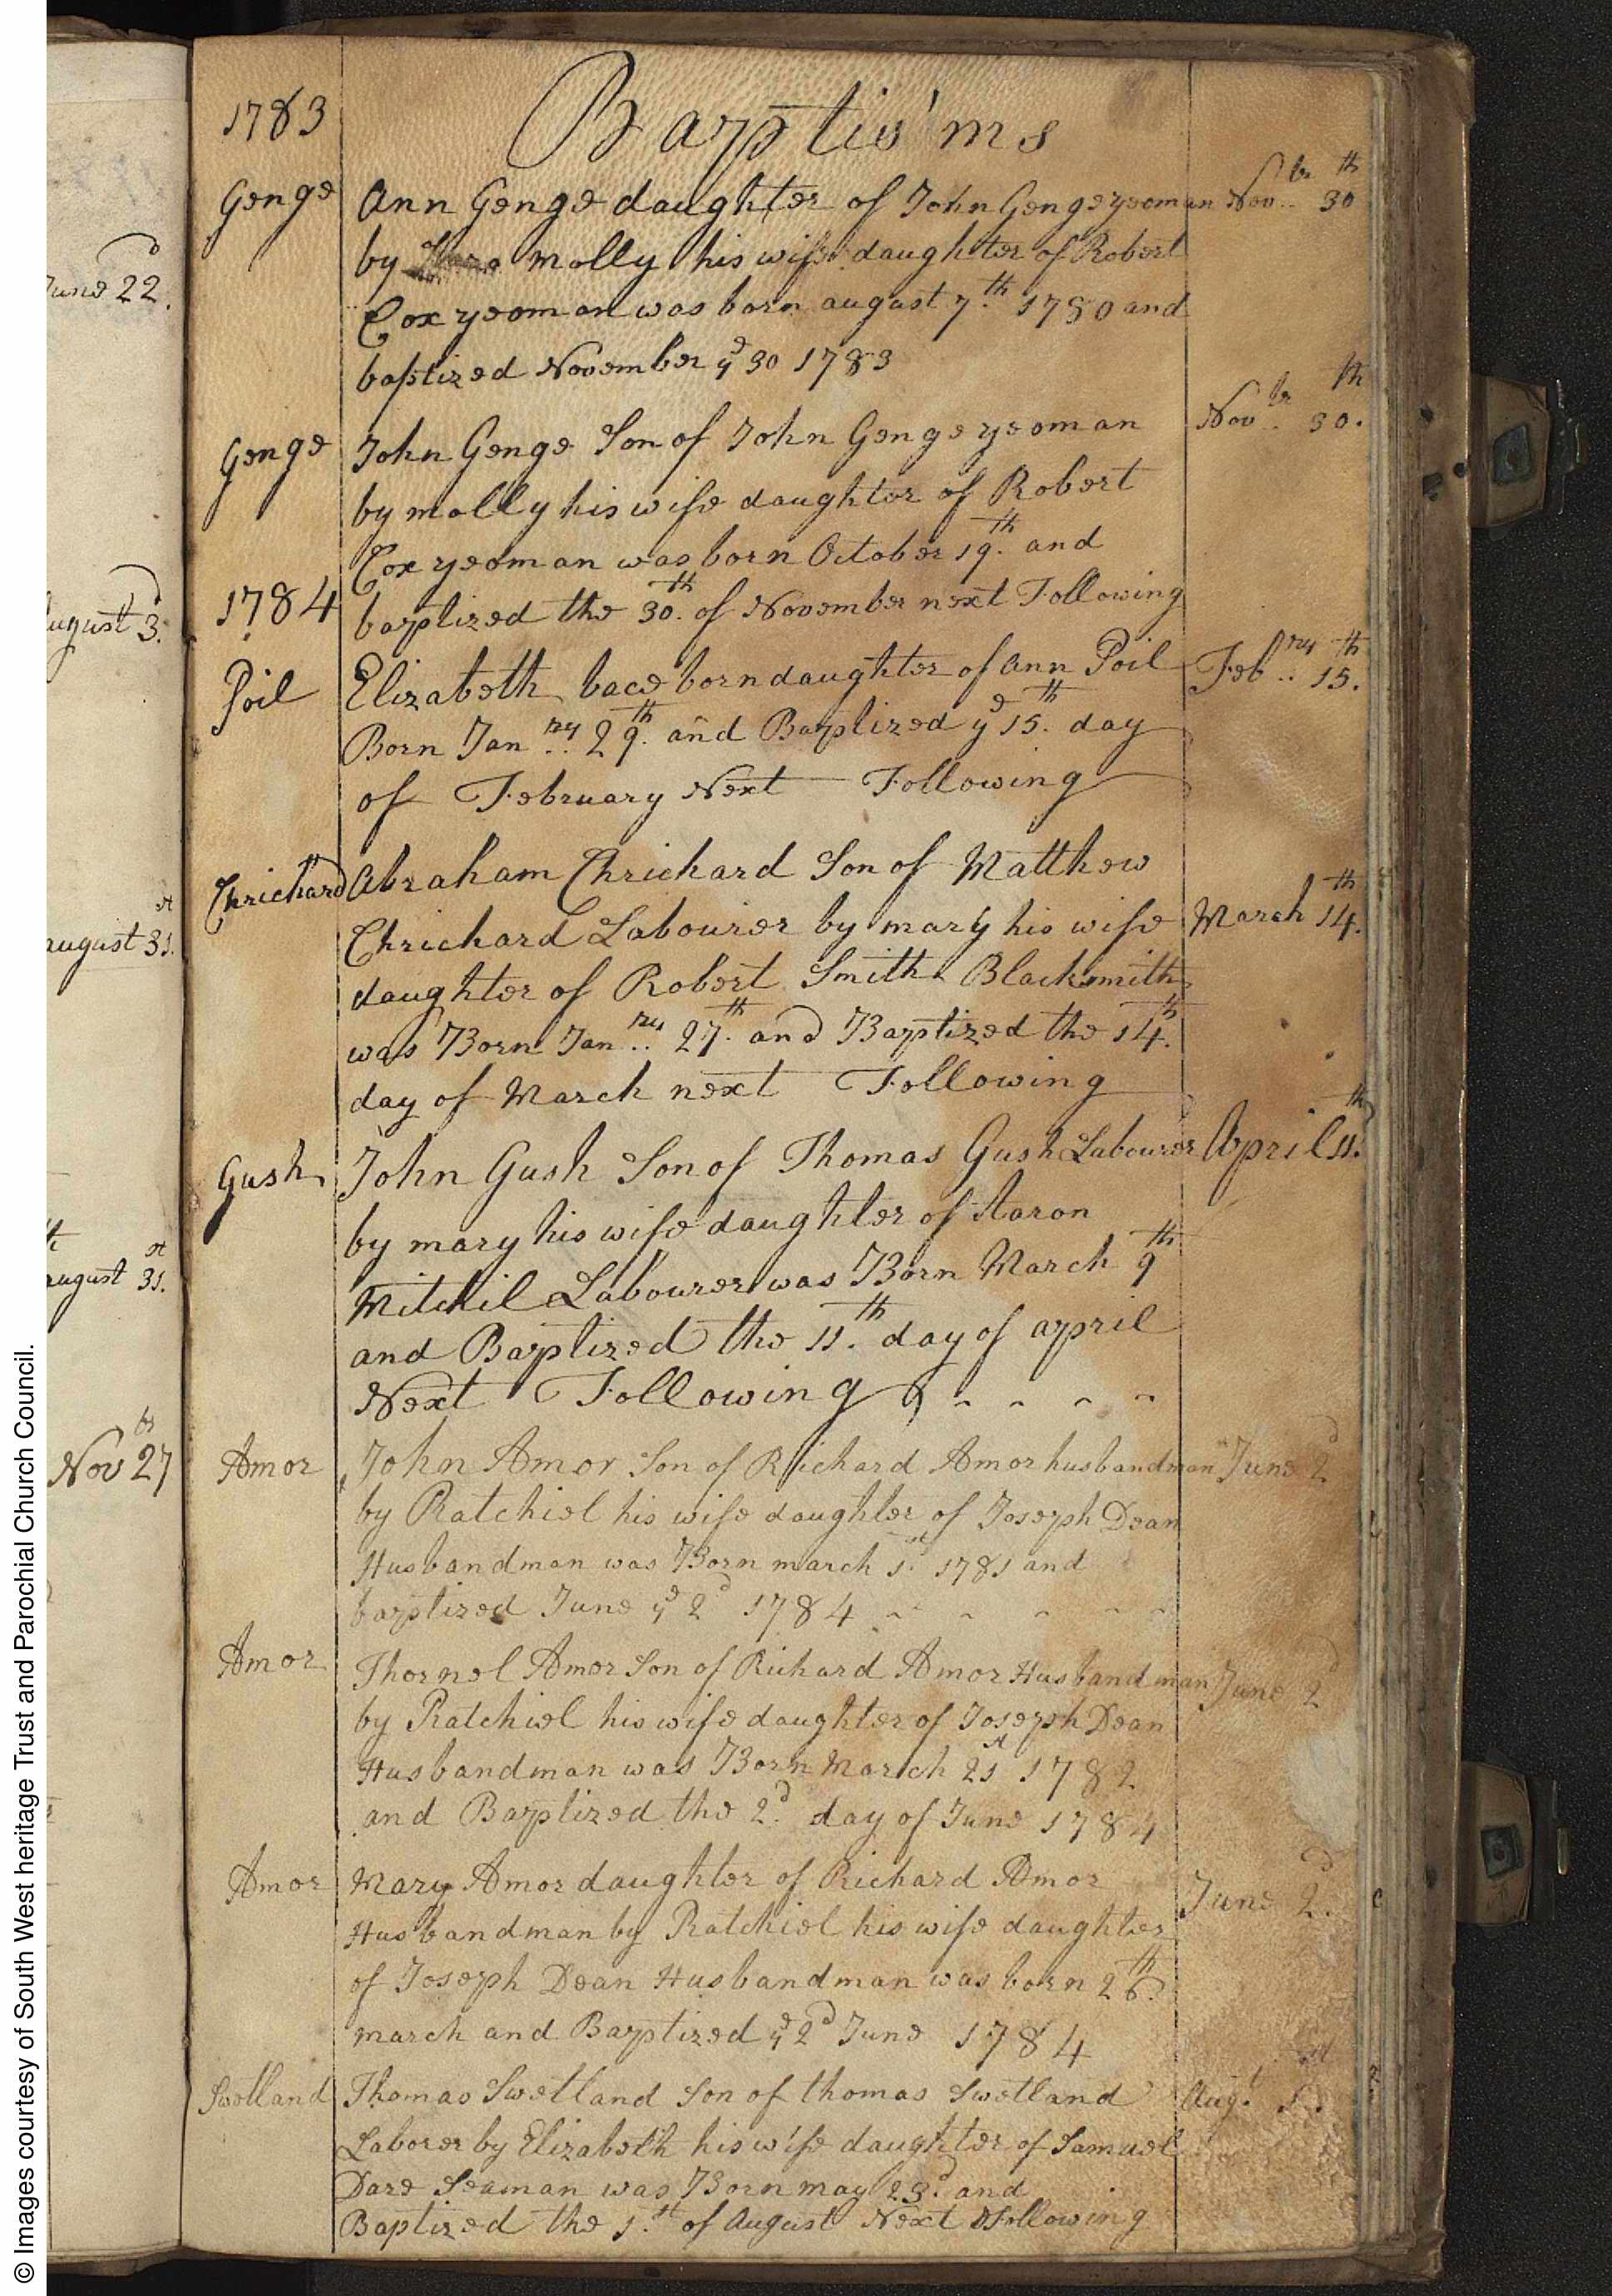 1783
Baptis'ms
Genge
Ann Genge daughter of John Genge yeoman
Nov.br 30th
by molly his wife daughter of Robert
Cox yeoman was born august 7th. 1780 and
baptized November ye 30 1783
Genge
John Genge Son of John Genge yeoman
Nov.br 30th.
by molly his wife daughter of Robert
Cox yeoman was born October 19th. and
1784
baptized the 30th. of November next Following
Poil
Elizabeth bace born daughter of Ann Poil
Feb.ry 15th.
Born Jan.ry 29th. and Baptized ye 15th. day
of February Next Following
Chrichard
Abraham Chrichard Son of Matthew
Chrichard Labourer by mary his wife
March 14th.
daughter of Robert Smith Blacksmith
was Born Jan.ry 27th. and Baptized the 14th.
day of March next Following
Gush
John Gush Son of Thomas Gush Labourer
April 11th.
by mary his wife daughter of Aaron
Mitchil Labourer was Born March 9th
and Baptized the 11th. day of april
Next Following
Amor
John Amor Son of Richard Amor husbandman
June 2d
by Ratchiel his wife daughter of Joseph Dean
Husbandman was Born march 1st. 1781 and
baptized June ye 2d 1784
Amor
Thornel Amor Son of Richard Amor Husbandman
June 2d
by Ratchiel his wife daughter of Joseph Dean
Husbandman was Born March 21st 1782
and Baptized the 2d. day of June 1784
Amor
Mary Amor daughter of Richard Amor
June 2d.
Husbandman by Ratchiel his wife daughter
of Joseph Dean Husbandman was born 26th.
march and Baptized ye 2d June 1784
Swetland
Thomas Swetland Son of thomas Swetland
Augt. 1st.
Laborer by Elizabeth his wife daughter of Samuel
Dare Seaman was Born may 23d. and
Baptized the 1st. of August Next Following
June 22d.
August 3d.
august 31st.
august 31st.
Novbr 27
© Images courtesy of South West heritage Trust and Parochial Church Council.